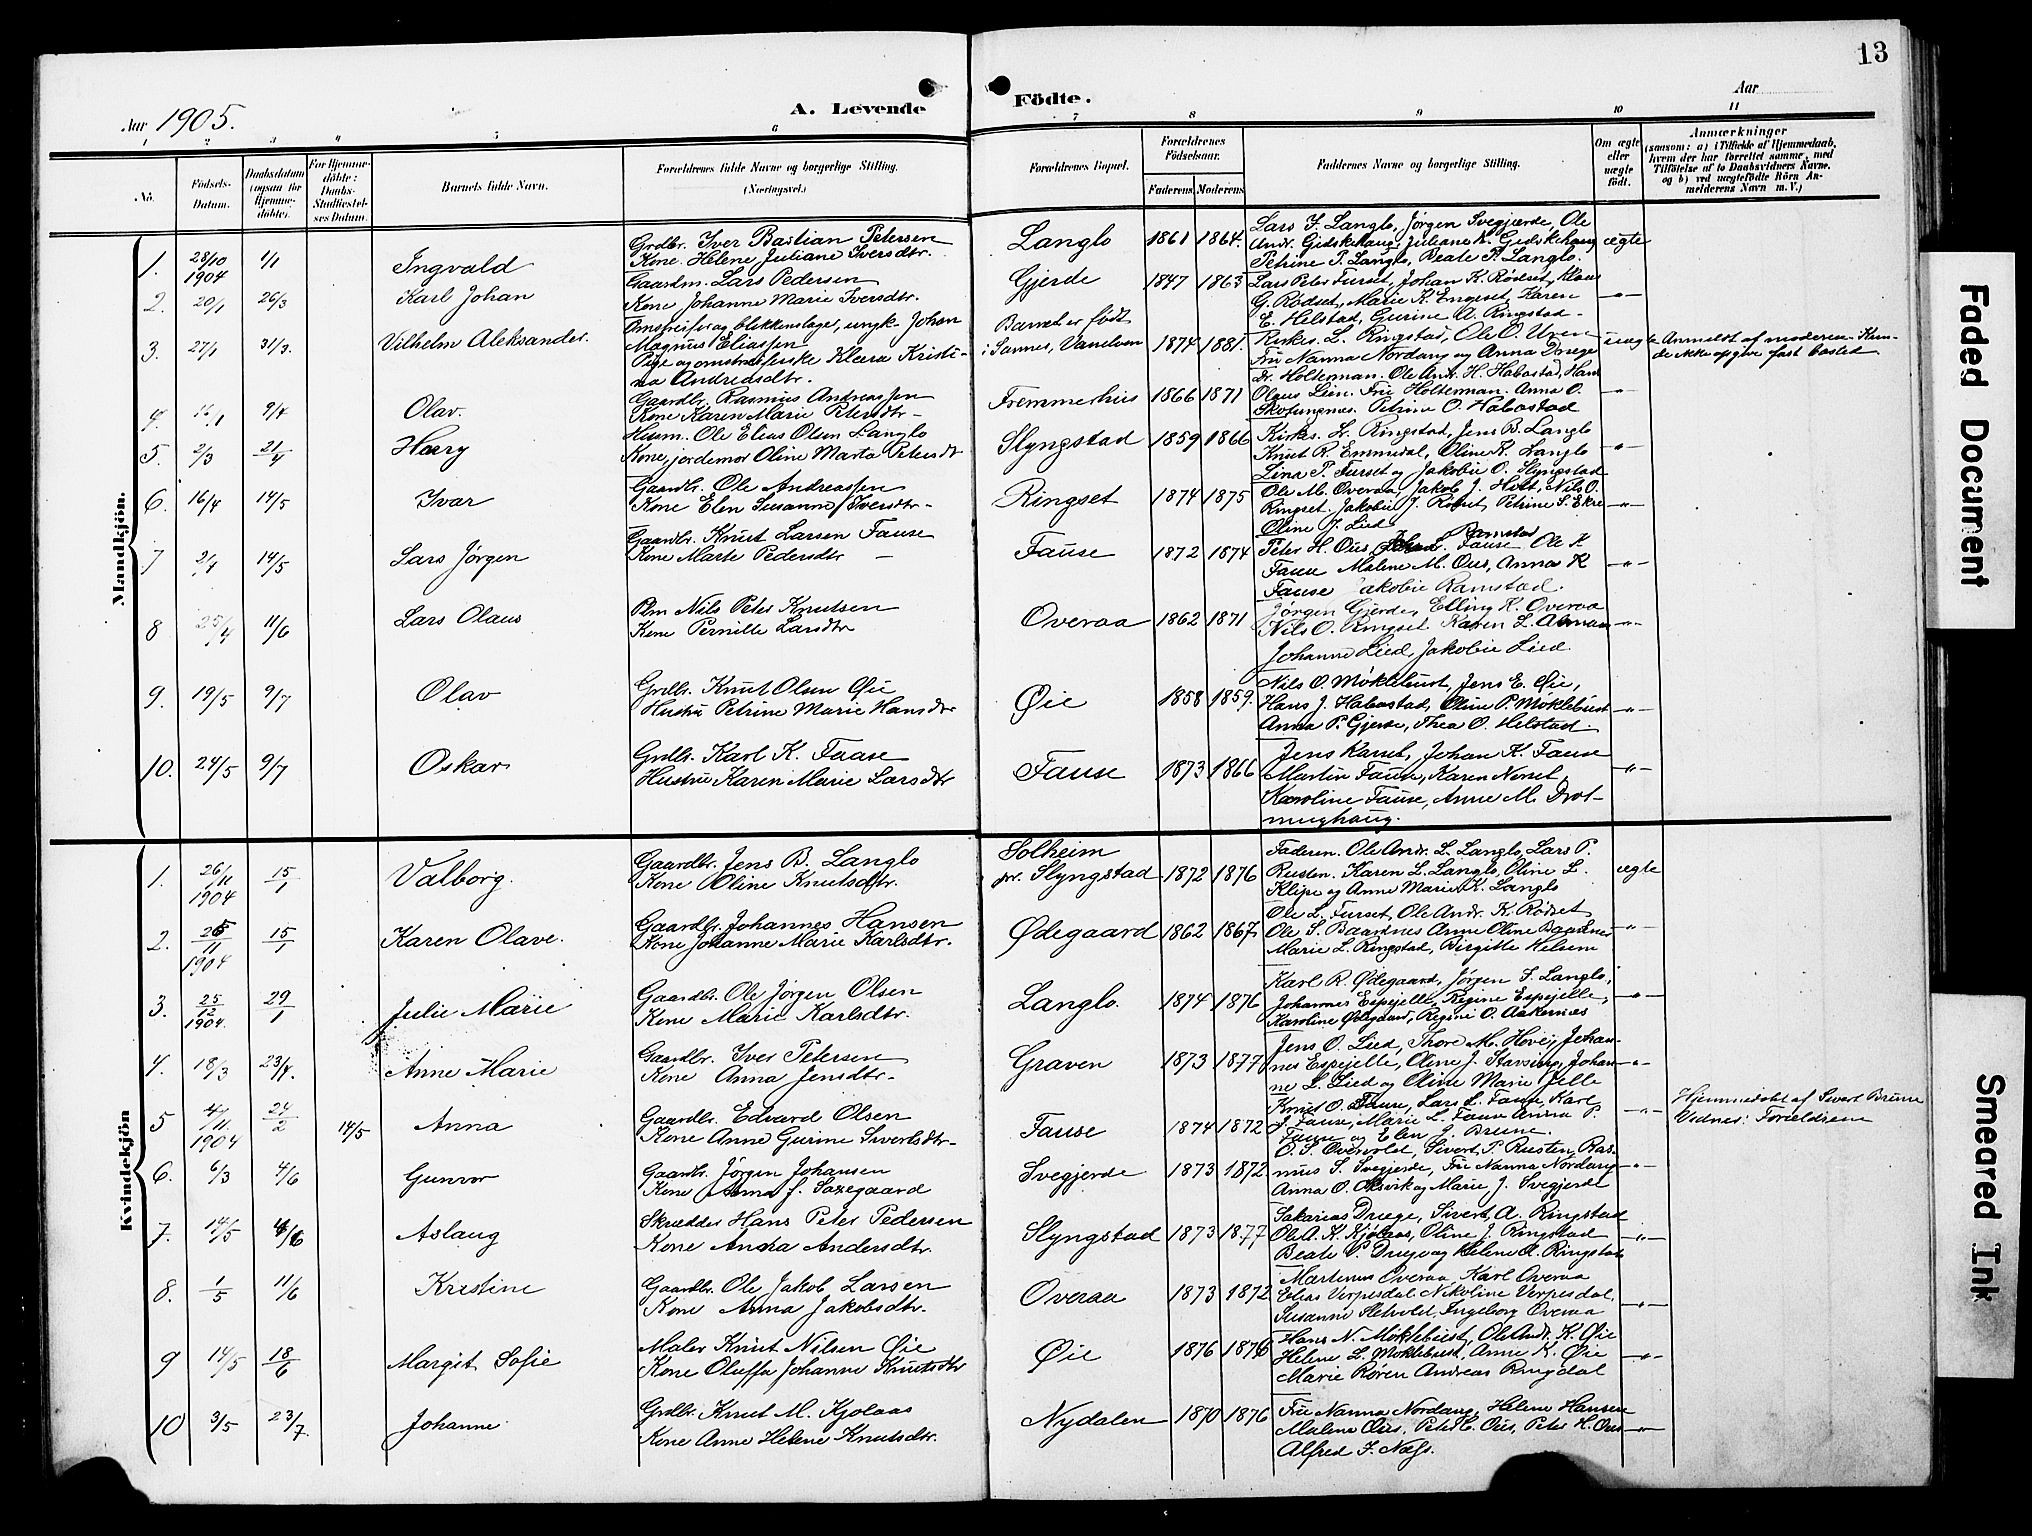 13
Aar 1905.
A. Levende
Födte.
Aar
1 2 3 4 5 6 7 8 9 10 11
No.
Födsels-Datum.
Daabsdatum (ogsaa for Hjemme-döbte).
For Hjemme-döbte: Daabs-Stadfæstel-ses Datum.
Barnets fulde Navn.
Forældrenes fulde Navne og borgerlige Stilling.
(Næringsvei.)
Forældrenes Bopæl.
Forældrenes Födselsaar.
Faderens. Moderens.
Faddernes Navne og borgerlige Stilling.
Om ægte eller uægte födt.
Anmærkninger
(saasom: a) i Tilfælde af Hjemmedaab,
hvem der har forrettet samme, med
Tilföielse af to Daabsvidners Navne.
og b) ved uægtefödte Börn An-
melderens Navn m. V.)
Mandkjön.
1. 28/10 1904 1/1 Ingvald
Grdbr. Iver Bastian Petersen
Kone Helene Juliane Iversdtr.
Langlo 1861 1864.
Lars J. Langlo, Jørgen Svegjærde, Ole
Andr. Gidskehaug, Juliane K. Gidskehaug
Petrine P. Langlo, Beate P. Langlo.
ægte
2. 20/1 26/3 Karl Johan
Gaardm. Lars Pedersen
Kone Johanne Marie Iversdtr.
Gjerde 1847 1863
Lars Peter Furset, Johan K. Rødset, Klaus
G. Rødset, Marie K. Engeset, Karen
E. Helstad, Gurine A. Ringstad
-"-
3. 27/1 31/3. Vilhelm Aleksander.
Omstreifer og blikkenslager, ungk. Johan
Magnus Eliassen
Pige og omstreiferske Klara Kristi-
na Andreasdtr.
Barnet er født
i Sannes, Vanelven 1874 1881.
Kirkes. L. Ringstad, Ole O. Uren
Fru Nanna Nordang og Anna Druge
uægte
Anmeldt af moderen. Kun-
de ikke opgive fast bosted
4. 16/1 9/4 Olav.
Gaardbr. Rasmus Andreassen
Kone Karen Marie Petersdtr -
Fremmerhus 1866 1871
Dr. Holterman. Ole Andr. H. Habostad, Hans
Olaus Lien. Fru Holterman. Anna O.
Skotungnes. Petrine O. Habostad
-"-
5. 2/3 21/4 Harry
Husm. Ole Elias Olsen Langlo
Kone, jordemor Oline Marta Petersdtr
Slyngstad 1859 1866
Kirkes. L. Ringstad, Jens B. Langlo
Knut R. Emmedal, Oline K. Langlo
Lina P. Furset og Jakobie O. Slyngstad
-"-
6. 16/4 14/5 Ivar
Gaardbr. Ole Andreassen
Kone Elen Susanne Iversdtr -
Ringset 1874 1875
Ole M. Overaa, Jakob J. Holt, Nils O.
Ringset, Jakobie J. Ringset, Petrine S. Ekre
Oline J. Lied
-"-
7 2/4 14/5 Lars Jørgen
Gaardbr. Knut Larsen Fause
Kone Marte Pedersdtr -
Fause 1872 1874
Ramstad
Peter H. Ous, Johan L. Fause Ole K
Fause Malene M. Ous, Anna K
Fause Jakobie Ramstad.
-"-
8 25/4 11/6 Lars Olaus
Plm Nils Peter Knutsen
Kone Pernille Larsdtr
Overaa 1862 1871
Jørgen Gjerde, Elling K. Overaa
Nils O. Ringset Karen L. Aaman
Johanne Lied, Jakobie Lied.
-"-
9. 19/5 9/7 Olav
Grdbr. Knut Olsen Øie
Hustru Petrine Marie Hansdtr
Øie 1858 1859.
Nils O. Møklebust, Jens E. Øie,
Hans J. Habostad, Oline P. Møklebust
Anna P. Gjerde, Thea O. Helstad.
-"-
10. 24/5 9/7 Oskar
Grdbr. Karl K. Fause
Hustru Karen Marie Larsdtr
Fause 1873 1866
Jens Karset, Johan K. Fause
Martin Fause, Karen Nerset,
Karoline Fause, Anne M. Drot-
minghaug.
-"-
Kvindekjön
1. 26/11 1904 15/1 Valborg.
Gaardbr. Jens B. Langlo
Kone Oline Knutsdtr.
Solheim
pr. Slyngstad 1872 1876
Faderen. Ole Andr. L. Langlo, Lars P.
Rusten. Karen L. Langlo, Oline L.
Klipe og Anne Marie K. Langlo
ægte
2. 26/11 1904 15/1 Karen Olave.
Gaardbr. Johannes Hansen
Kone Johanne Marie Karlsdtr.
Ødegaard 1862 1867.
Ole L. Furset, Ole Andr. K. Rødset
Ole S. Baardnes Anne Oline Baardnes
Marie L. Ringstad, Birgitte Helsem
-"-
3. 25/12 1904. 29/1 Julie Marie
Gaardbr. Ole Jørgen Olsen
Kone Marie Karlsdtr.
Langlo. 1874 1876
Karl R. Ødegaard, Jørgen J. Langlo,
Johannes Espejelle, Regine Espejelle,
Karoline Ødegaard, Regine O. Aakernes
-"-
4. 18/3 23/4. Anne Marie
Gaardbr. Iver Petersen
Kone Anna Jensdtr.
Graven 1873 1877
Jens O. Lied, Thore M. Hove, Johan-
nes Espejelle, Oline J. Stavseng, Johan-
ne L. Lied og Oline Marie Jelle
-"-
5 4/11. 1904 24/2 14/5 Anna
Gaardbr. Edvard Olsen
Kone Anne Gurine Sivertsdtr -
Fause 1874 1872
Knut O. Fause, Lars L. Fause Karl
J. Fause, Marie L. Fause Anna P.
Fause og Elen J. Brune.
-"-
Hjemmedøbt af Sivert Brune
Vidner: Forældrene
6. 6/3 4/6 Gunvor
Gaardbr. Jørgen Johansen
Kone Anna J. Saxegaard
Svegjerde 1873 1872.
O. S. Overvold, Sivert P. Rusten, Ras-
mus S. Svegjerde, Fru Nanna Nordang
Anna O. Alsvik og Marie J. Svegjerde
-"-
7. 14/5 4/6 Aslaug
Skrædder Hans Peter Pedersen
Kone Anna Andersdtr.
Slyngstad 1873 1877
Sakarias Druge, Sivert A. Ringstad
Ole A. K. Kjølaas, Oline J. Ringstad
Beate P. Druge og Helene A. Ringstad
-"-
8. 1/5 11/6 Kristine
Gaardbr. Ole Jakob Larsen
Kone Anna Jakobsdtr.
Overaa 1873 1872
Martinus Overaa, Karl Overaa
Elias Verpesdal Nikoline Verpesdal,
Susanne Hetvold, Ingeborg Overaa
-"-
9 14/5 18/6 Margit Sofie
Maler Knut Nilsen Øie
Kone Oluffa Johanne Knutsdtr
Øie 1876 1876
Hans N. Møklebust, Ole Andr. K. Øie
Helene L. Møklebust, Anne K. Øie
Marie Røren Andreas Ringdal
-"-
10 3/5 23/7. Johanne
Grdbr. Knut M. Kjølaas
Kone Anne Helene Knutsdtr.
Nydalen 1870 1876
Fru Nanna Nordang, Helene Hansen
Malene Ous, Peter E. Ous, Peter H. Ous
Alfred J. Næss.
-"-
Faded Document
Smeared Ink